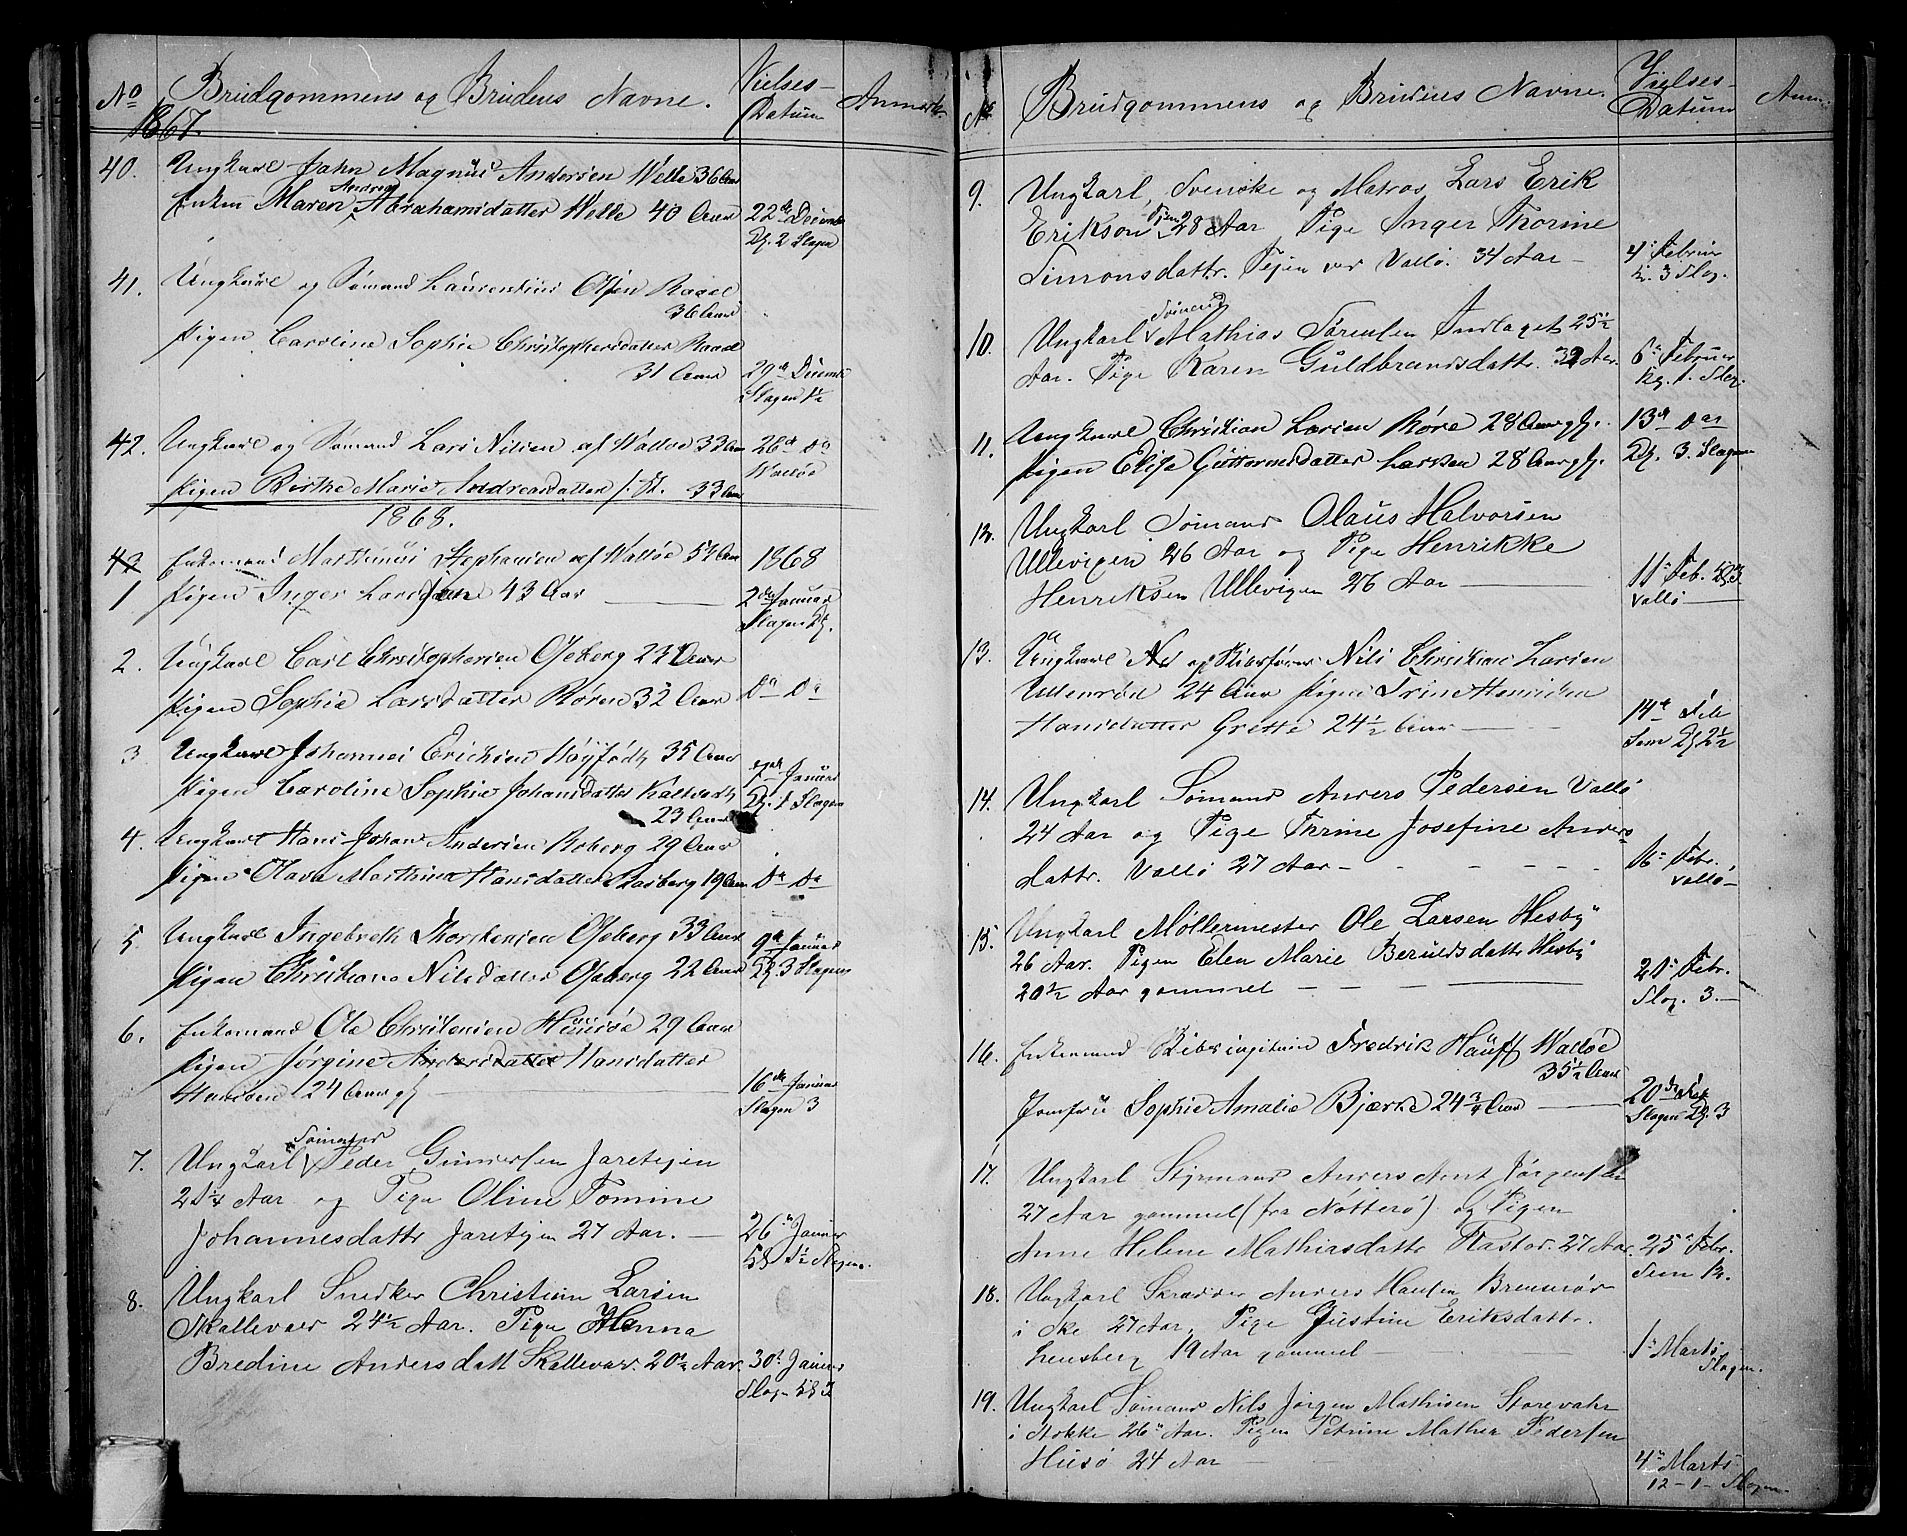 No Brudgommens og Brudens Navne. Vielses-Datum Anmærk.
1867.
40. Ungkarl Jahn Magnus Andersen Welle 36 Aar
Enken Maren Andrea Abrahamsdatter Welde 40 Aar 22de Decemb
Kl. 2 Slagen
41. Ungkarl og Sømand Laurentius Olsen Raael
36 Aar
Pigen Caroline Sophie Christophersdatter Raael
31 Aar 29de Decemb
Slagen 1½
42. Ungkarl og Sømand Lars Nilsen af Walløe 33 Aar 26de Do
Pigen Birthe Marie Andreasdatter 33 Aar Walløe
1868.
42 Enkemand Marthinus Stephansen af Walløe 54 Aar 1868
1 Pigen Inger Larsdatter 43 Aar 2den Januar
Slagen Kl.
2. Ungkarl Carl Christophersen Oseberg 23 Aar
Pigen Sophie Larsdatter Røren 32 Aar Do Do
3. Ungkarl Johannes Ericksen 35 Aar
Januar
Pigen Caroline Sophie Johansdatter Kalstad Kl. 1 Slagen
23 Aar
4. Ungkarl Hans Johan Andersen Roberg 29 Aar
Pigen Olava Marthine Hansdatter 19 Aar Do Do
5. Ungkarl Ingebreth Thorstensen Oseberg 33 Aar 9de Januar
Pigen Christiane Nilsdatter Oseberg 22 Aar Kl. 3 Slagen
6. Enkemand Ole Christensen 29 Aar
Pigen Jørgine Andersdatter Hansdatter
24 Aar gl 16de Januar
Slagen 3
7. Ungkarl Sømand Peder Gundersen Jaretejen
21¼ Aar og Pige Oline Tomine
Johannesdattr Jaretejen 27 Aar. 26de Januar
8. Ungkarl Snedker Christian Larsen
Skallevar 24½ Aar. Pige Henna
Bredine Andersdatt Skallevar. 20½ Aar. 30te Januar
Slag.
No Brudgommens og Brudens Navne. Vielses-Datum Anm.
9. Ungkarl, Svenske og Matros Lars Erik
Erikson Tjøn 28 Aar Pige Inger Thorine
Simonsdattr. Tejen ved Vallø. 34 Aar 4de Februar
Kl. 3 Slag.
10. Ungkarl Sømand Mathias Sørensen Indlaget 25½
Aar. Pige Karen Guldbrandsdattr. 32 Aar. 6te Februar
Kl. 1. Slag.
11. Ungkarl Christian Larsen Røre 28 Aar gl. 13de Do
Pigen Elise Guttormsdatter 28 Aar gl. Kl. 3. Slagen
12. Ungkarl Sømand Olaus Halvorsen
Ullevigen 26 Aar og Pige Henrikke
Henriksen Ullevigen 26 Aar 11te Feb.
Vallø
13. Ungkarl Nils Christian Larsen
Ullenrød 24 Aar Pigen Trine
Hansdatter Grette 24½ Aar 14de Feb
Sem Kl 2½
14. Ungkarl Sømand Anders Pedersen Vallø
24 Aar og Pige Thrine Josefine Anders-
dattr. Vallø 27 Aar 16de Febr.
Vallø
15. Ungkarl Møllermester Ole Larsen Hesby
26 Aar. Pigen Elen Marie Berulfsdattr Hesby
20½ Aar gammel 21de Febr.
Slag. 3.
16. Enkemand Fredrik Hauff Walløe
35½ Aar
Jomfru Sophie Amalie Bjærke 24¾ Aar 20de Feb
Slagen Kl. 3
17. Ungkarl Styrmand Anders Arnt Jørgensen
27 Aar gammel (fra Nøtterø) og Pigen
Anne Helene Mathiasdattr Rastad. 27 Aar. 25de Febr.
Sem 12.
18. Ungkarl Skrædder Anders Hansen
i Ske 27 Aar, Pige Justine Eriksdattr.
Lensberg 19 Aar gammel 1te Marts
Slagen.
19. Ungkarl Sømand Nils Jørgen Mathisen Storevahr
i Stokke 26 Aar. Pigen Petrine Mathea Pedersen
Husø 24 Aar 4de Marts
12-1- Slagen.